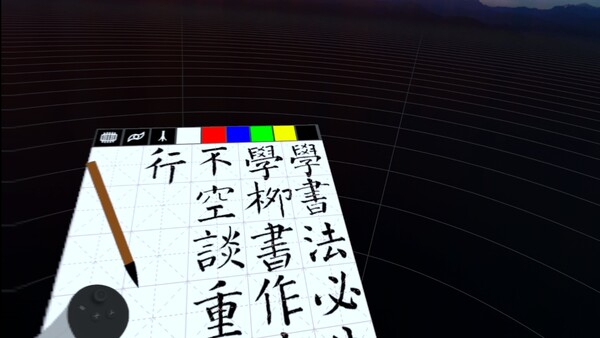 學書法必
學柳書作
不空談重
行